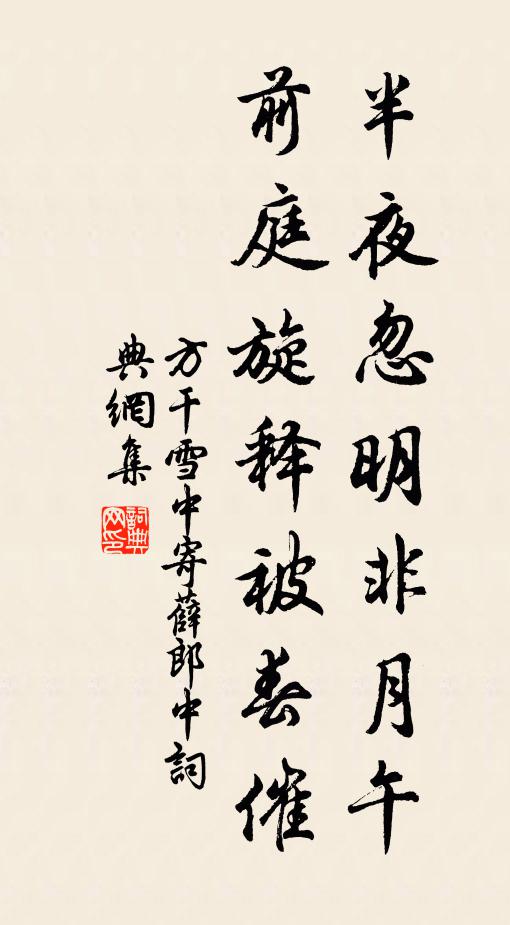 半夜忽明非月午
前庭旋释被春催
方干雪中寄薛郎中詞
典網集
詞典
网印